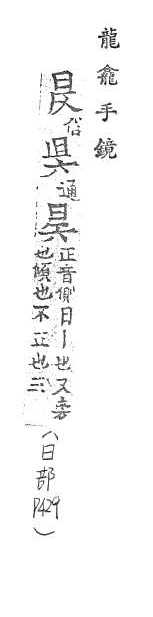 龍龕手鏡
𣅔俗𣅦通昃正音側日丨也又旁
也傾也不正也三
(日部P429)